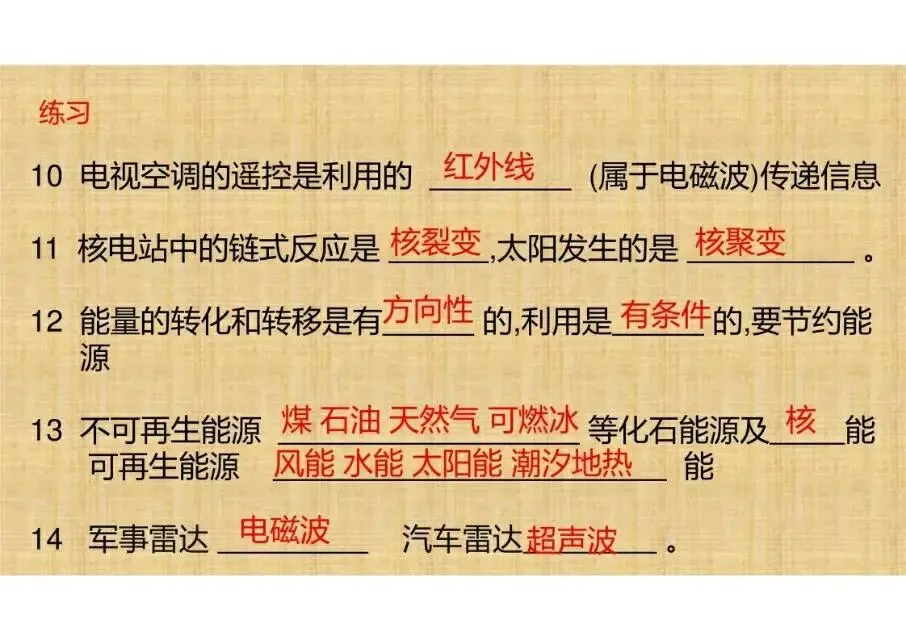 练习
10 电视空调的遥控是利用的 红外线 (属于电磁波)传递信息
11 核电站中的链式反应是 核裂变 ,太阳发生的是 核聚变 。
12 能量的转化和转移是有方向性 的,利用是 有条件 的,要节约能
源
13 不可再生能源 煤 石油 天然气 可燃冰 等化石能源及 核 能
可再生能源 风能 水能 太阳能 潮汐地热 能
14 军事雷达 电磁波 汽车雷达超声波 。